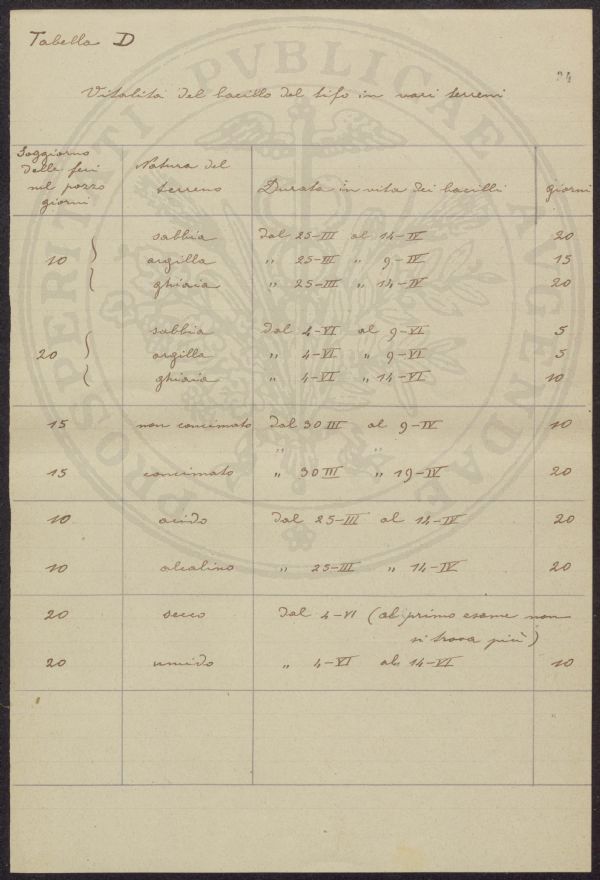 Tabella D
24
Vitalità del bacillo del tifo in vari terreni
Soggiorno
delle feci
nel pozzo
giorni
Natura del
terreno
Durata in vita dei bacilli
giorni
sabbia dal 25-III al 14-IV 20
10 argilla " 25-III " 9-IV 15
ghiaia " 25-III " 14-IV 20
sabbia dal 4-VI al 9-VI 5
20 argilla " 4-VI " 9-VI 5
ghiaia " 4-VI " 14-VI 10
15 non concimato dal 30 III al 9-IV 10
" "
15 concimato " 30 III " 19-IV 20
10 acido dal 25-III al 14-IV 20
10 alcalino " 25-III " 14-IV 20
20 secco dal 4-VI (al primo esame non
si trova più)
20 umido " 4-VI al 14-VI 10
PROSPERITATI PVBLICAE AVGENDAE